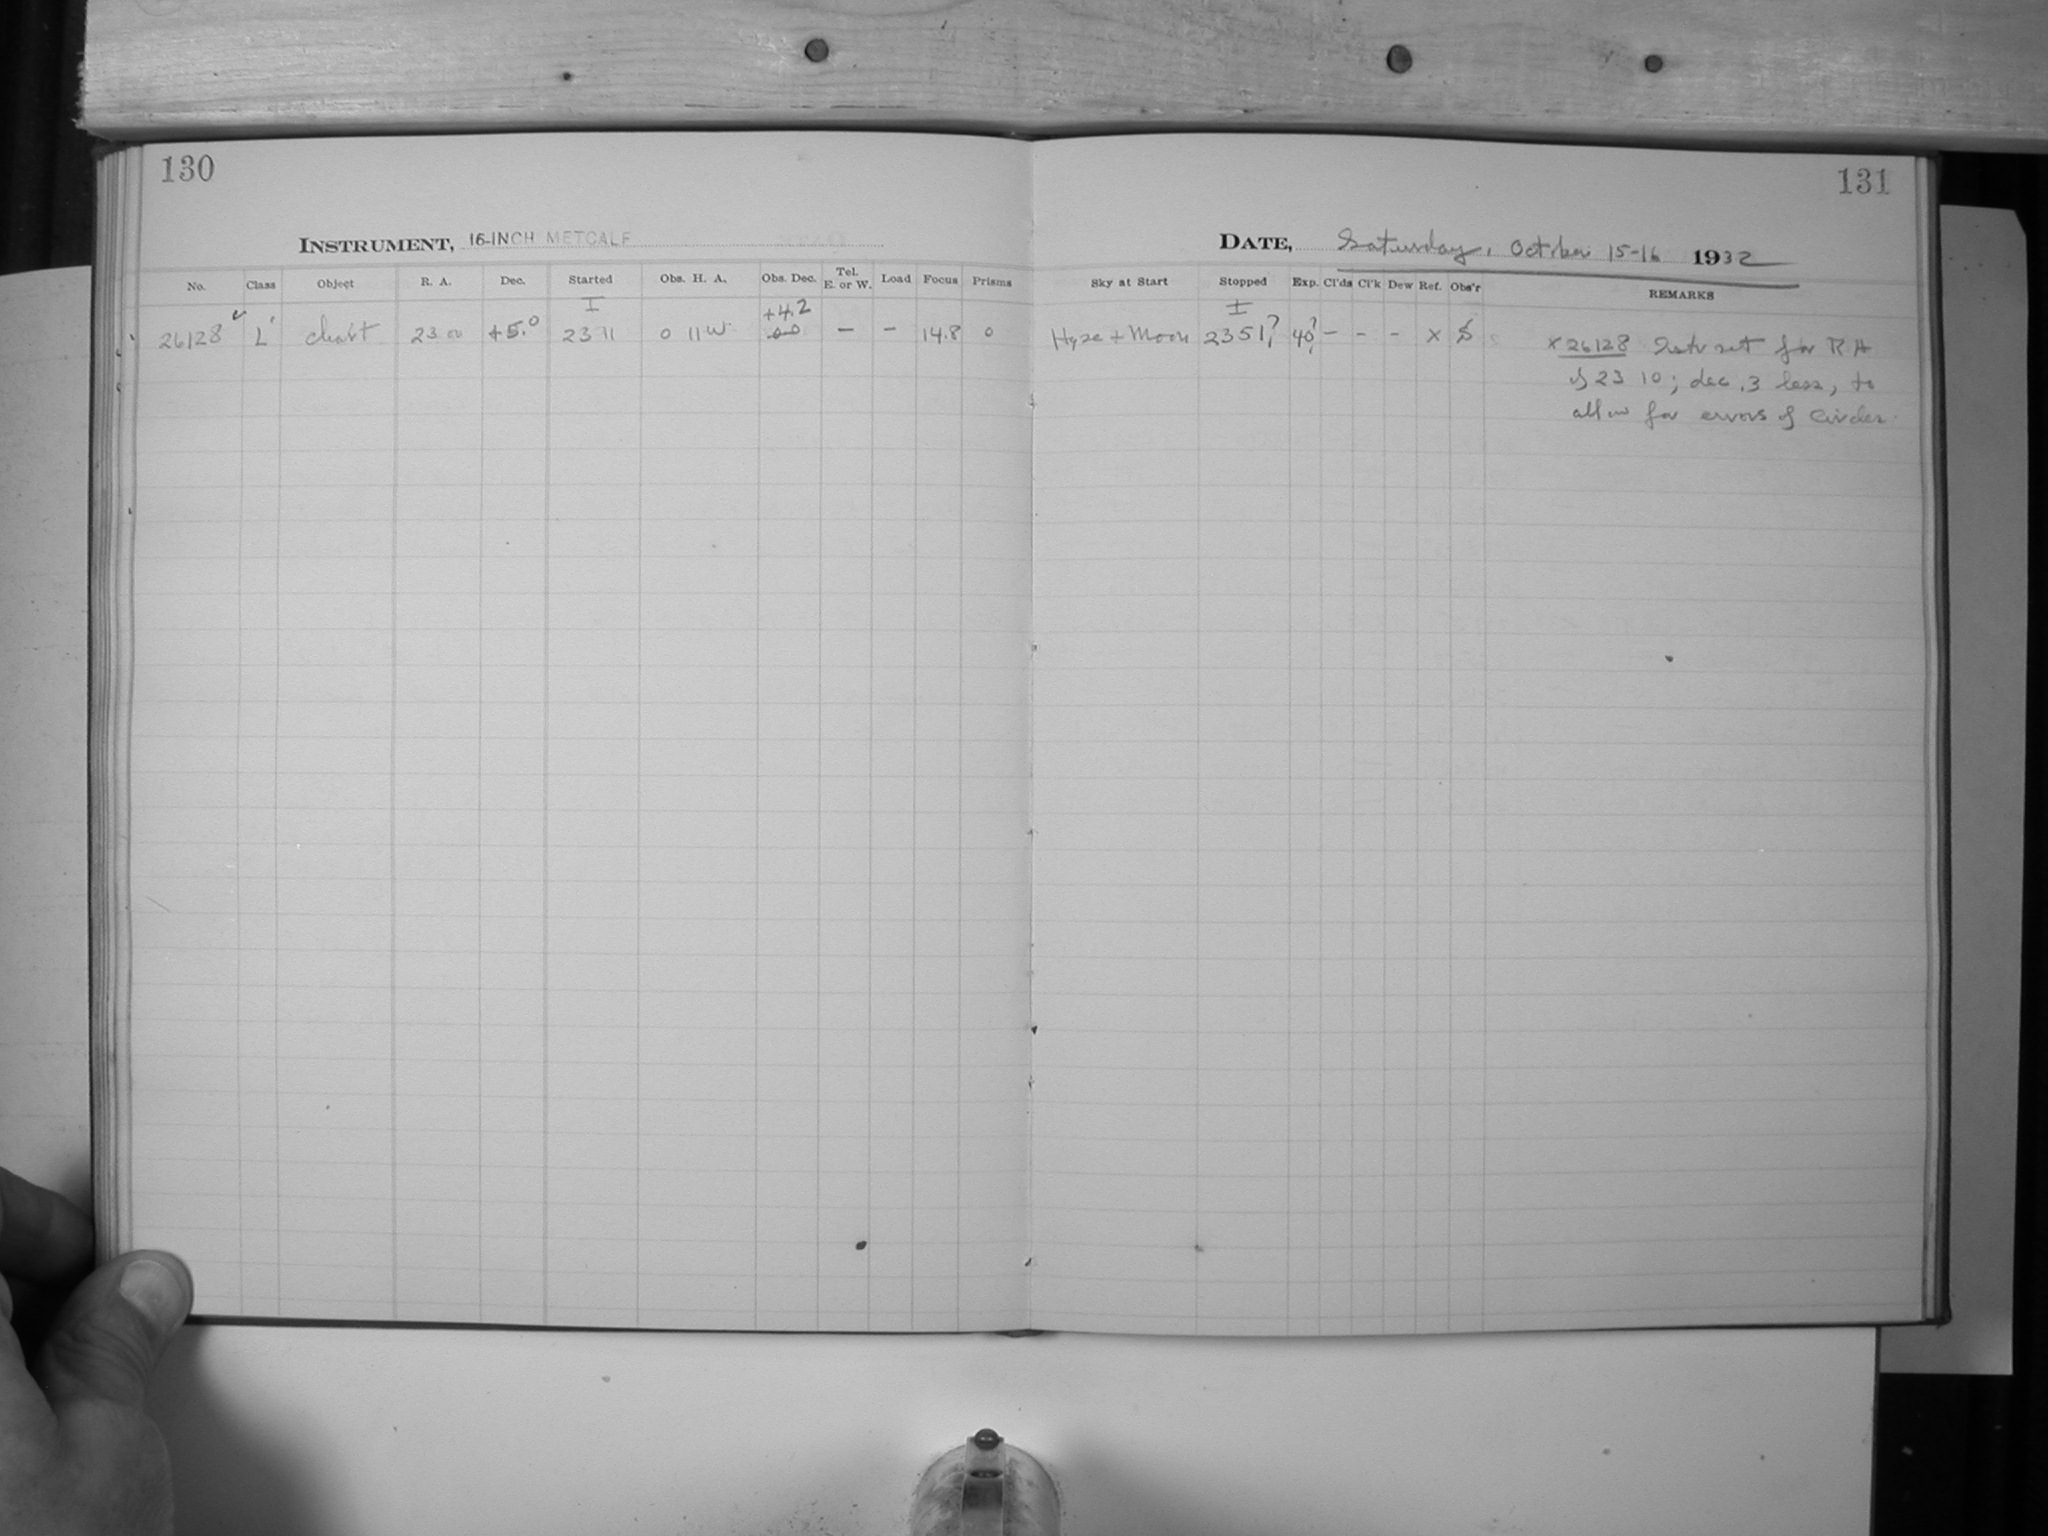 130
131
INSTRUMENT, 16-INCH METCALF
DATE, Saturday, October 15-16 1932
No. Class Object R. A. Dec. Started Obs. H. A. Obs. Dec. Tel. E. or W. Load Focus Prisms
Sky at Start Stopped Exp. Cl'ds Cl'k Dew Ref. Obs'r REMARKS
I +4.2 I
26128 L chart 23 00 +5.0 23 11 0 11 W — — 14.8 0
Haze + Moon 23 51? 40? - - - x S
x 26128 Instr set for RA
of 23 10; dec .3 less, to
allow for errors of Circles.